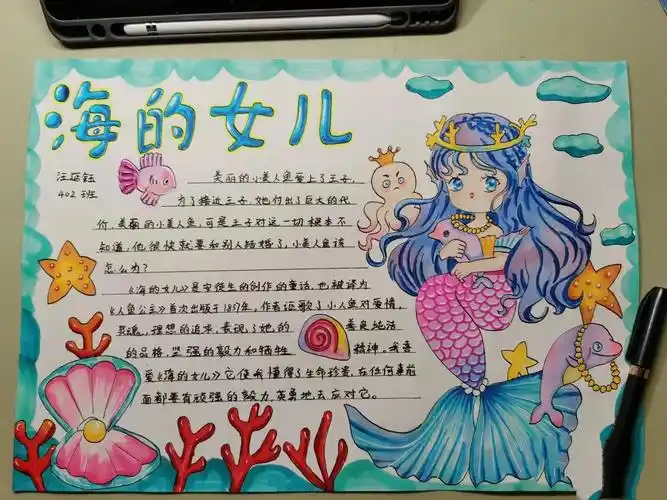 海的女儿
402班
美丽的小美人鱼爱上了王子
为了接近王子,她付出了巨大的代
价,美丽的小美人鱼,可是王子对这一切根本不
知道,他很快就要和别人结婚了,小美人鱼该
怎么办?
《海的女儿》是安徒生的创作的童话,也被译为
《人鱼公主》首次出版于1837年,作者讴歌了小人鱼对爱情,
灵魂,理想的追求,表现了她的善良纯洁
的品格,坚强的毅力和牺牲精神。我喜
爱《海的女儿》它使我懂得了生命珍贵,在任何事前
面都要有顽强的毅力,英勇地去应对它。